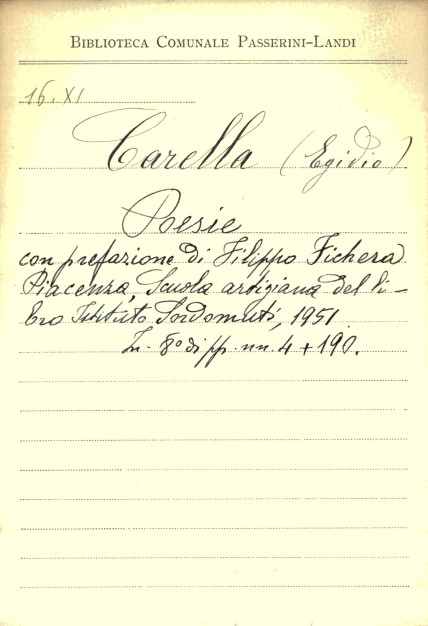 BIBLIOTECA COMUNALE PASSERINI-LANDI
16. XI
Carella (Egidio)
Poesie
con prefazione di Filippo Fichera
Piacenza, Scuola artigiana del li-
bro Istituto Sordomuti, 1951
In-8° di pp. nn. 4 + 190.